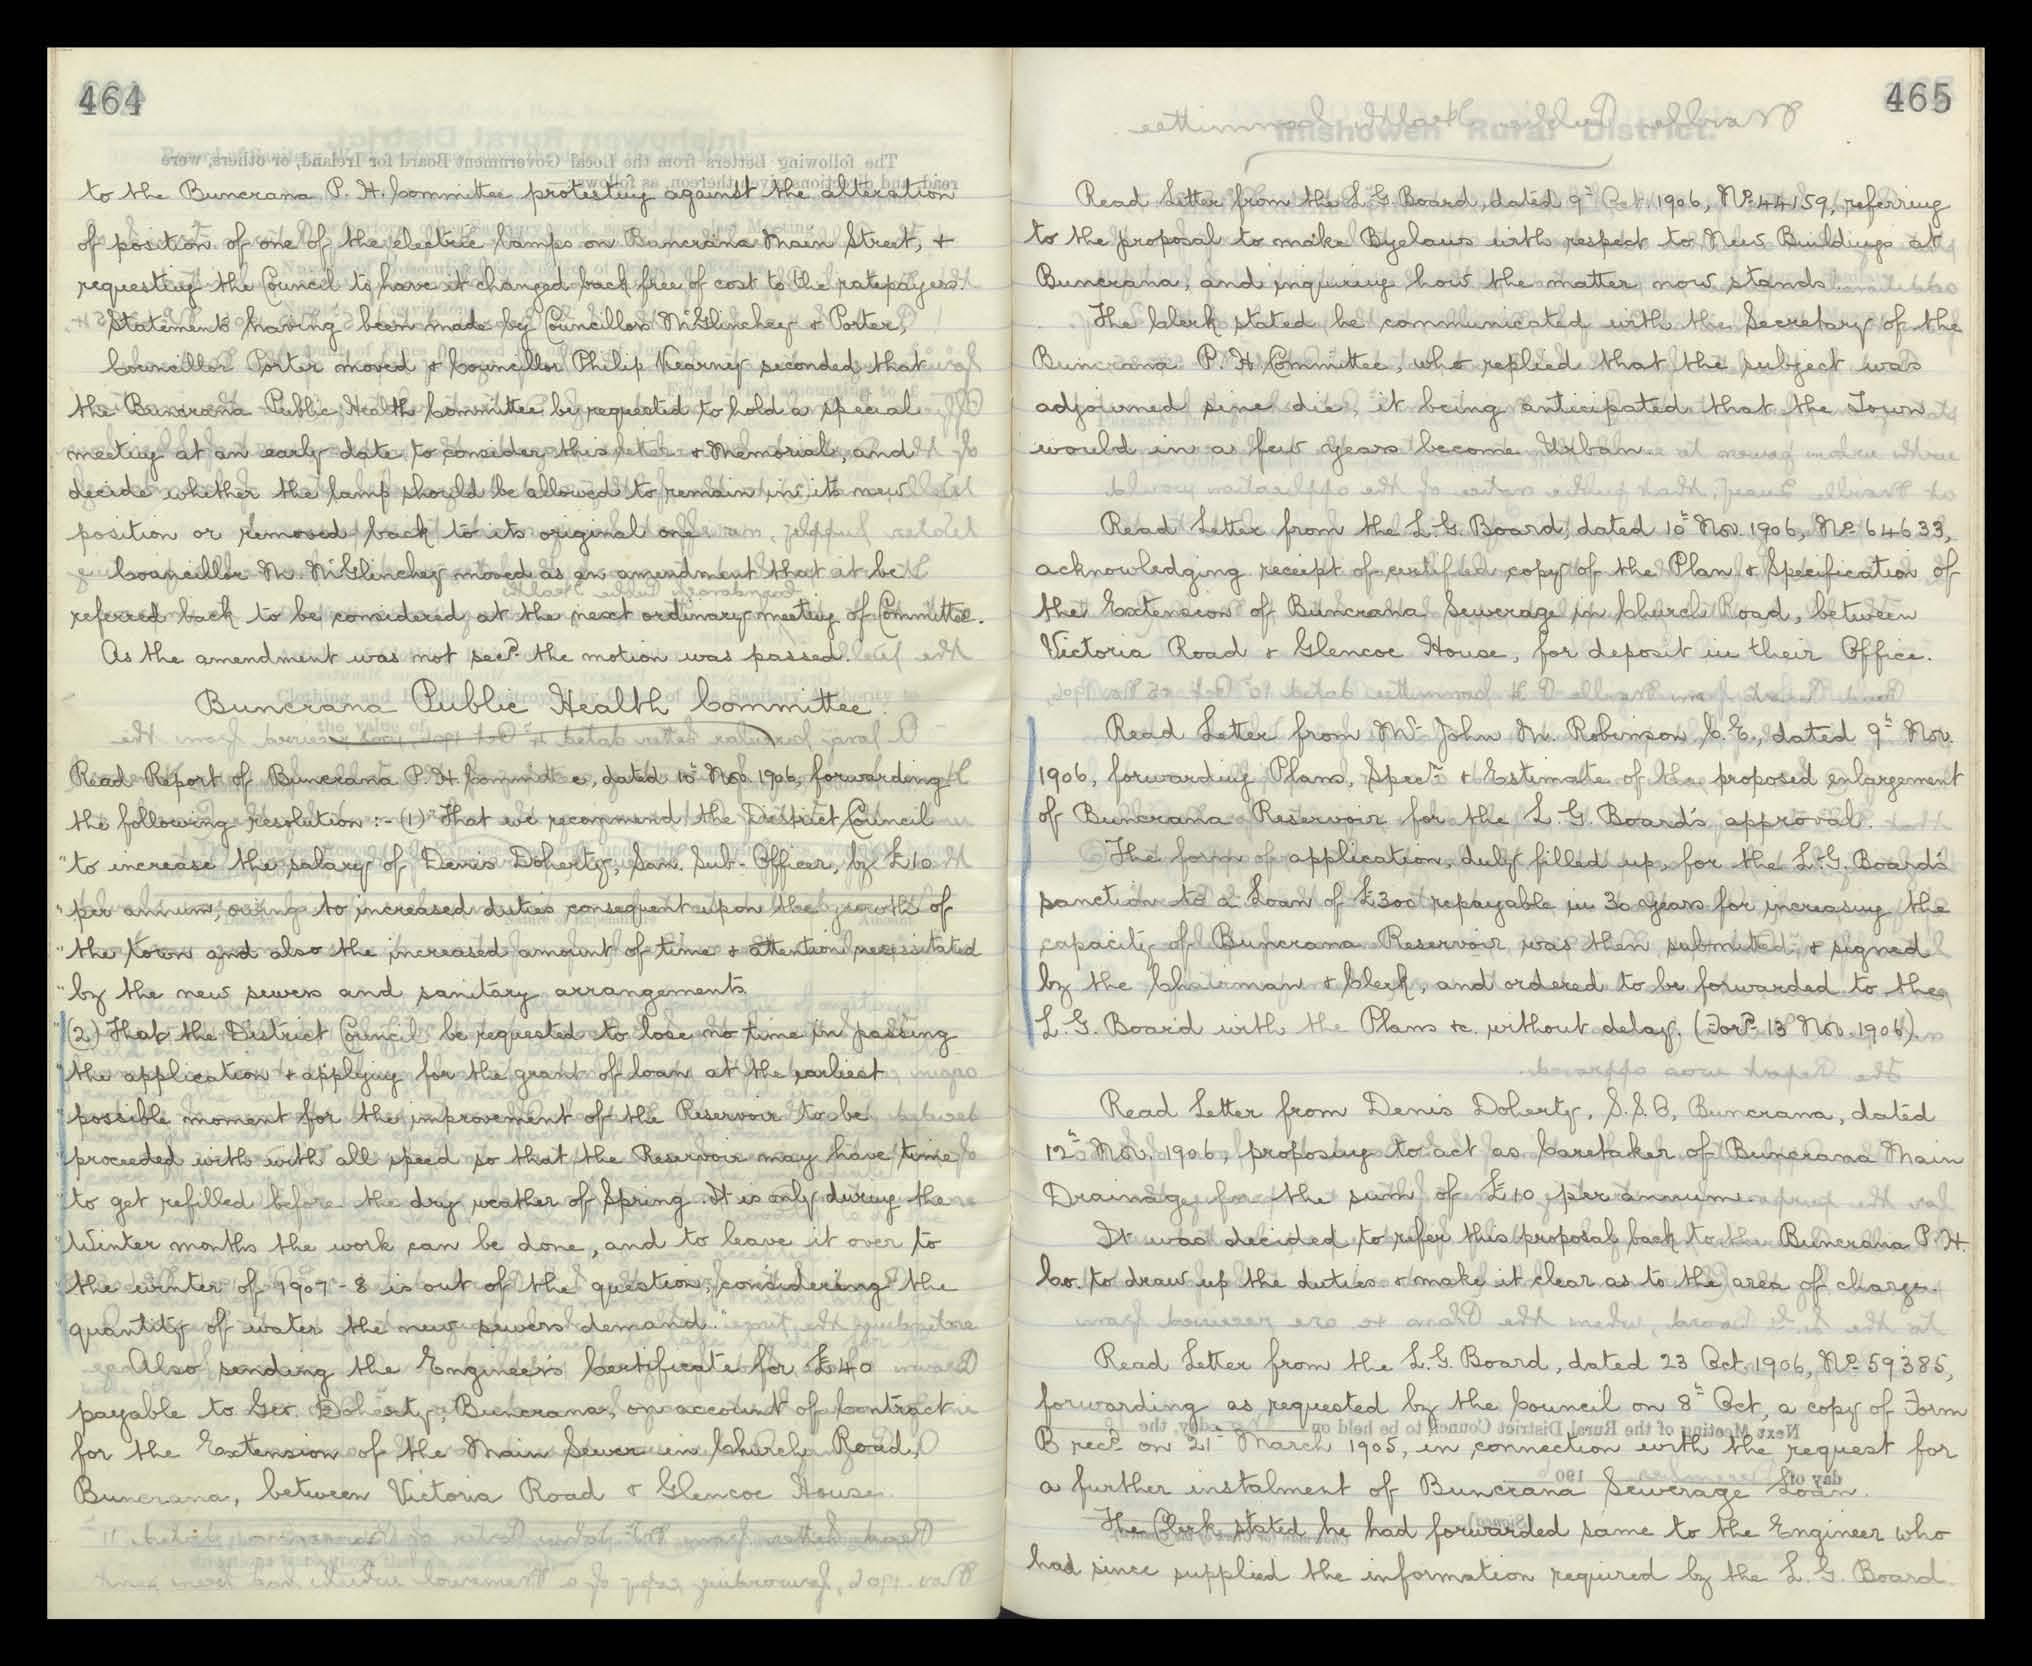 464
to the Buncrana P. H. Committee protesting against the alteration
of position of one of the electric lamps on Buncrana Main Street, &
requesting the Council to have it changed back free of cost to the ratepayers.
Statements having been made by Councillors McGlinchey & Porter,
Councillor Porter moved & Councillor Philip Kearney seconded that
the Buncrana Public Health Committee be requested to hold a special
meeting at an early date to consider this letter & Memorials, and
decide whether the lamp should be allowed to remain in its new
position or removed back to its original one.
Councillor M. McGlinchey moved as an amendment that it be
referred back to be considered at the next ordinary meeting of Committee.
As the amendment was not secd. the motion was passed.
Buncrana Public Health Committee.
Read Report of Buncrana P. H. Committee, dated 10th Nov. 1906, forwarding
the following resolution :- (1) "That we recommend the District Council
"to increase the salary of Denis Doherty, San. Sub-Officer, by £10
"per annum, owing to increased duties consequent upon the growth of
"the town and also the increased amount of time & attention necessitated
"by the new sewers and sanitary arrangements.
"(2) That the District Council be requested to lose no time in passing
"the application & applying for the grant of loan at the earliest
"possible moment for the improvement of the Reservoir to be
"proceeded with with all speed so that the Reservoir may have time
"to get refilled before the dry weather of Spring. It is only during the
"Winter months the work can be done, and to leave it over to
"the winter of 1907-8 is out of the question, considering the
"quantity of water the new sewers demand."
Also sending the Engineer's Certificate for £40
payable to Geo. Doherty, Buncrana, on account of Contract
for the Extension of the Main Sewer in Church Road,
Buncrana, between Victoria Road & Glencoe House.
465
Read Letter from the L. G. Board, dated 9th Oct. 1906, No. 44159, referring
to the proposal to make Byelaws with respect to New Buildings at
Buncrana, and inquiring how the matter now stands.
The Clerk stated he communicated with the Secretary of the
Buncrana P. H. Committee, who replied that the subject was
adjourned sine die, it being anticipated that the Town
would in a few years become Urban.
Read Letter from the L. G. Board, dated 10th Nov. 1906, No. 64633,
acknowledging receipt of certified copy of the Plan & Specification of
the Extension of Buncrana Sewerage in Church Road, between
Victoria Road & Glencoe House, for deposit in their Office.
Read Letter from Mr. John M. Robinson, C.E., dated 9th Nov.
1906, forwarding Plans, Specn. & Estimate of the proposed enlargement
of Buncrana Reservoir for the L. G. Board's approval.
The form of application, duly filled up, for the L. G. Board's
sanction to a Loan of £300 repayable in 30 years for increasing the
capacity of Buncrana Reservoir was then submitted & signed
by the Chairman & Clerk, and ordered to be forwarded to the
L. G. Board with the Plans &c. without delay. (Ford. 13 Nov. 1906).
Read Letter from Denis Doherty, S.S.O, Buncrana, dated
12th Nov. 1906, proposing to act as Caretaker of Buncrana Main
Drainage for the sum of £10 per annum.
It was decided to refer this proposal back to the Buncrana P. H.
Co. to draw up the duties & make it clear as to the area of charge.
Read Letter from the L. G. Board, dated 23 Oct. 1906, No. 59385,
forwarding as requested by the Council on 8th Oct, a copy of Form
B recd. on 21st March 1905, in connection with the request for
a further instalment of Buncrana Sewerage Loan.
The Clerk stated he had forwarded same to the Engineer who
had since supplied the information required by the L. G. Board.